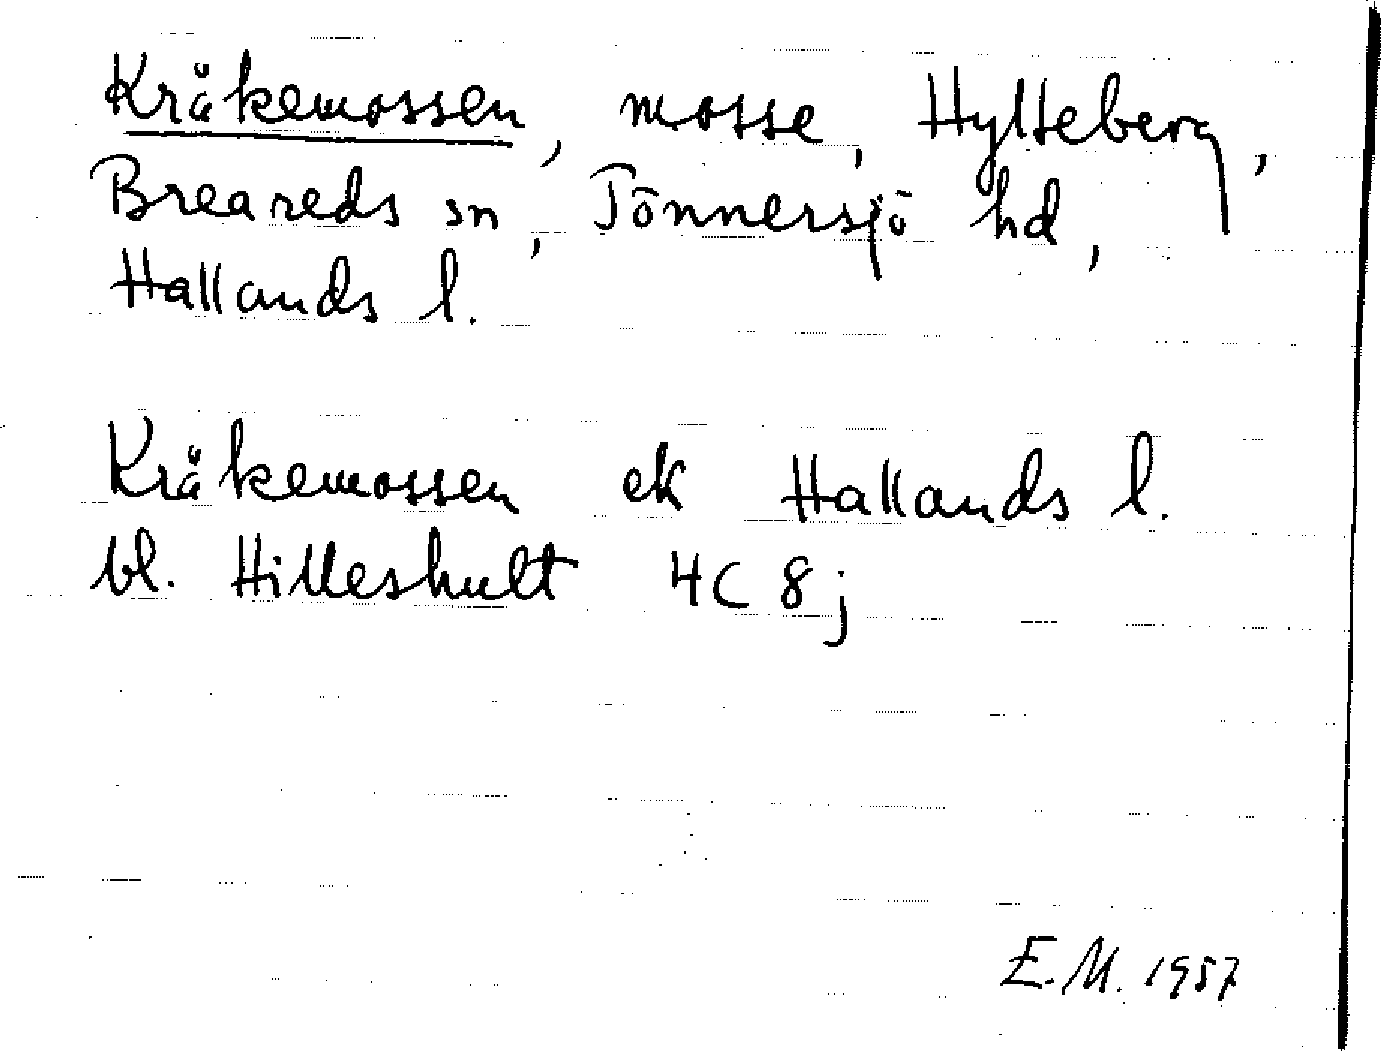 Kråkemossen, mosse, Hylteberg,
Breareds sn, Tönnersjö hd,
Hallands l.
Kråkemossen ek Hallands l.
bl. Hilleshult 4C 8j
E.M. 1957